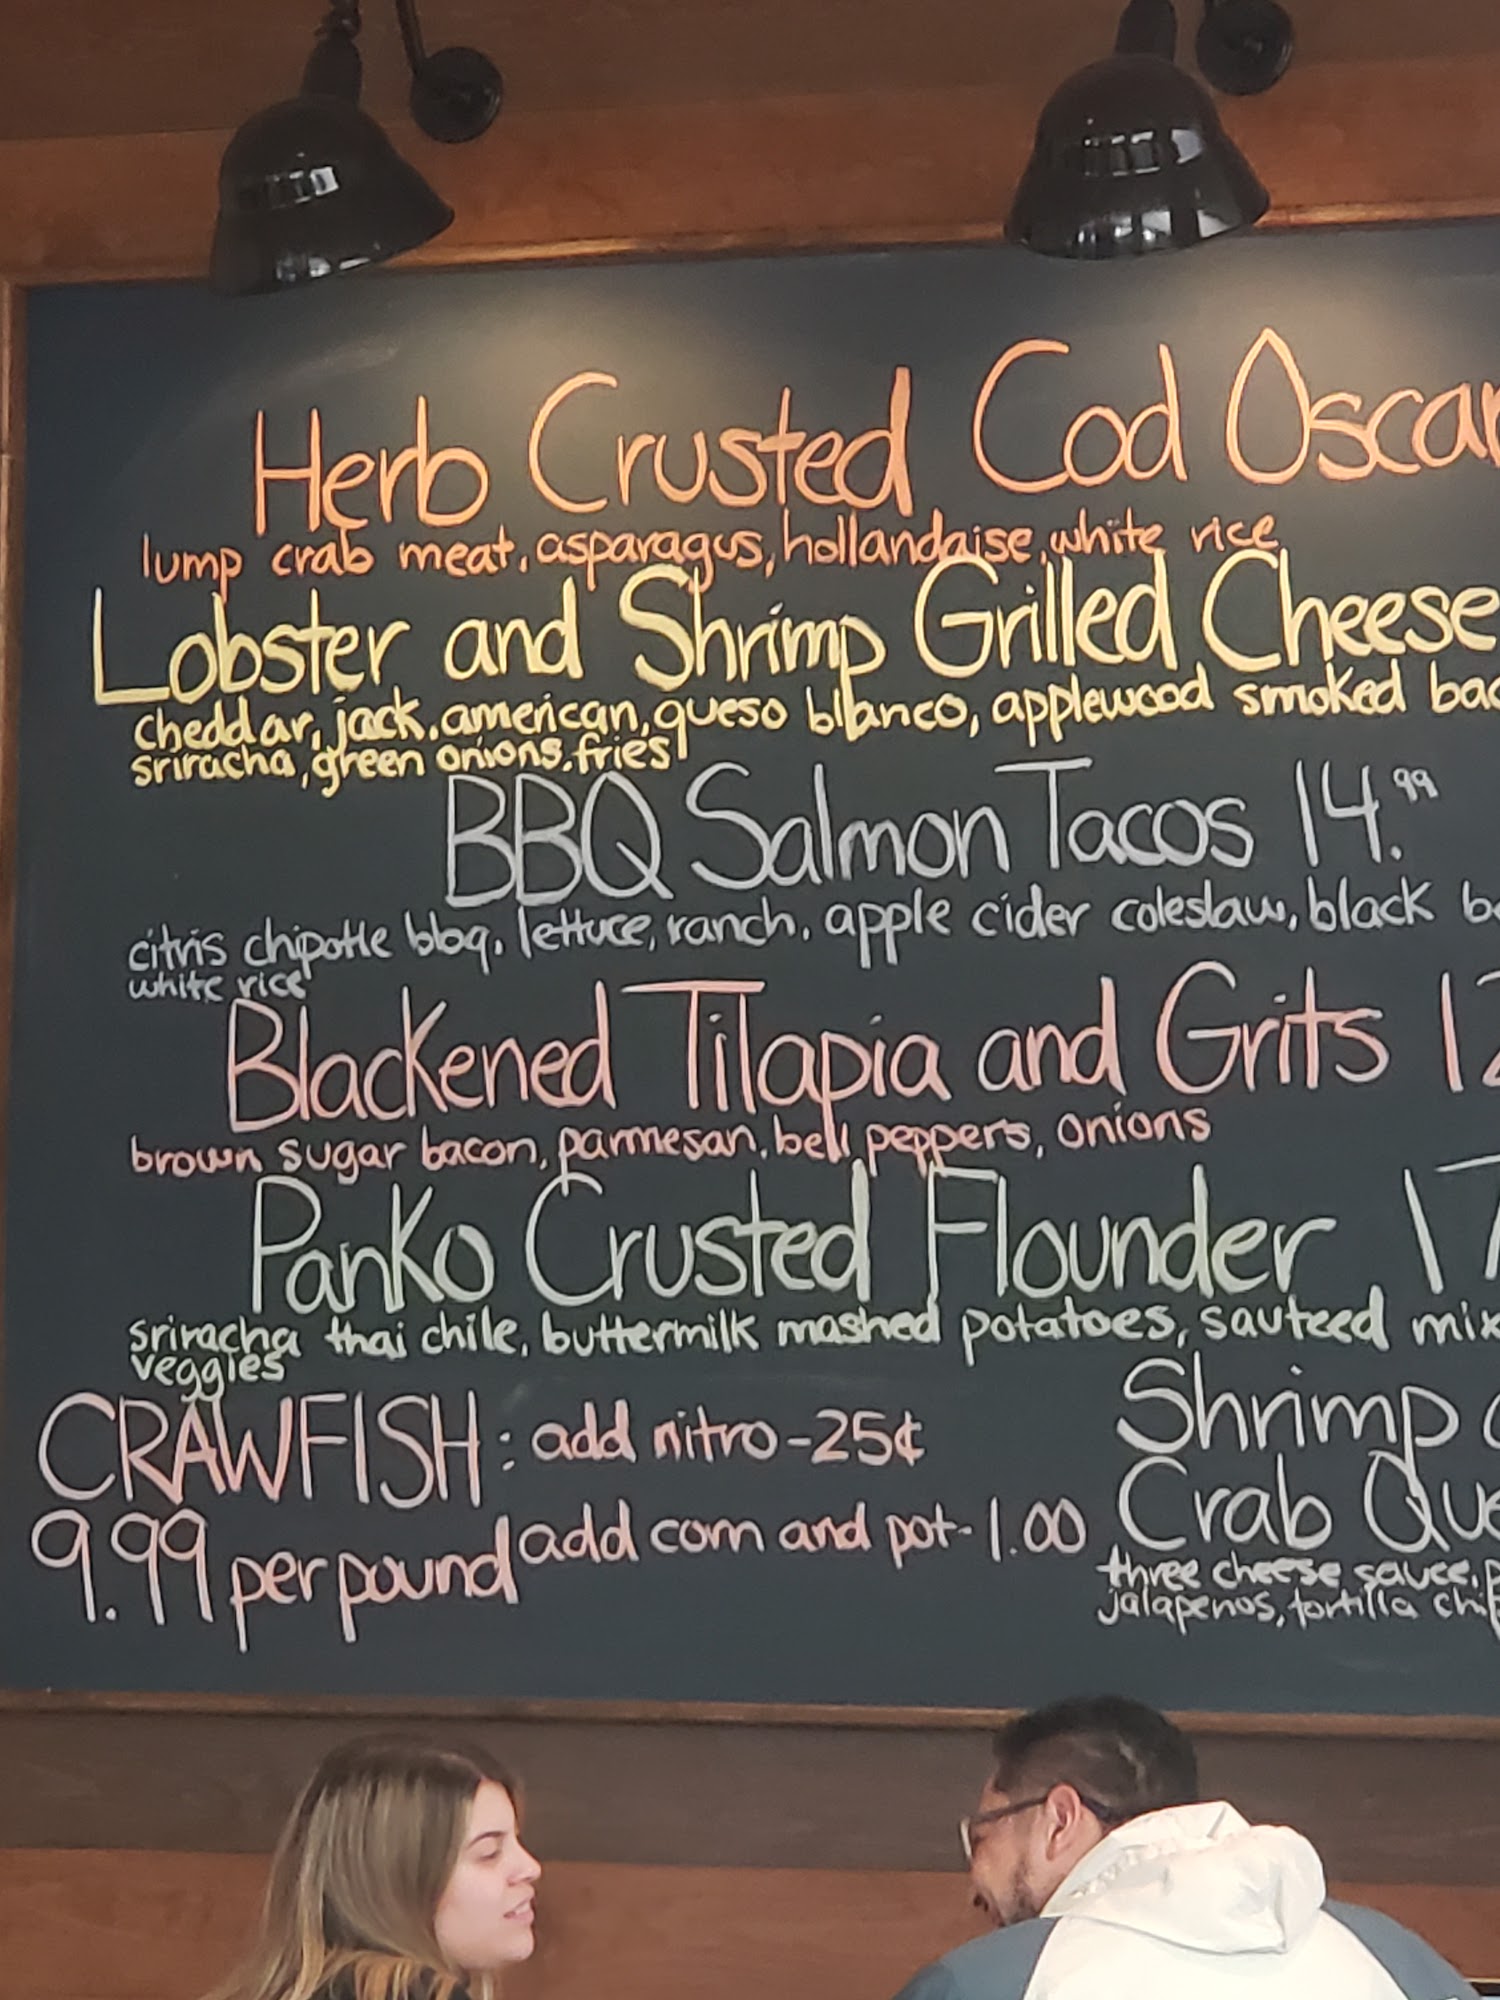 Herb Crusted Cod Oscar
lump crab meat, asparagus, hollandaise, white rice
Lobster and Shrimp Grilled Cheese
cheddar, jack, american, queso blanco, applewood smoked
sriracha, green onions, fries
BBQ Salmon Tacos 14.99
citris chipotle bbq, lettuce, ranch, apple cider coleslaw, black
white rice
Blackened Tilapia and Grits 12
brown sugar bacon, parmesan, bell peppers, onions
Panko Crusted Flounder 17
sriracha thai chile, buttermilk mashed potatoes, sauteed mix
veggies
CRAWFISH: add nitro-25¢
9.99 per pound add corn and pot-1.00
Shrimp
Crab Que
three cheese sauce,
jalapenos, tortilla chip